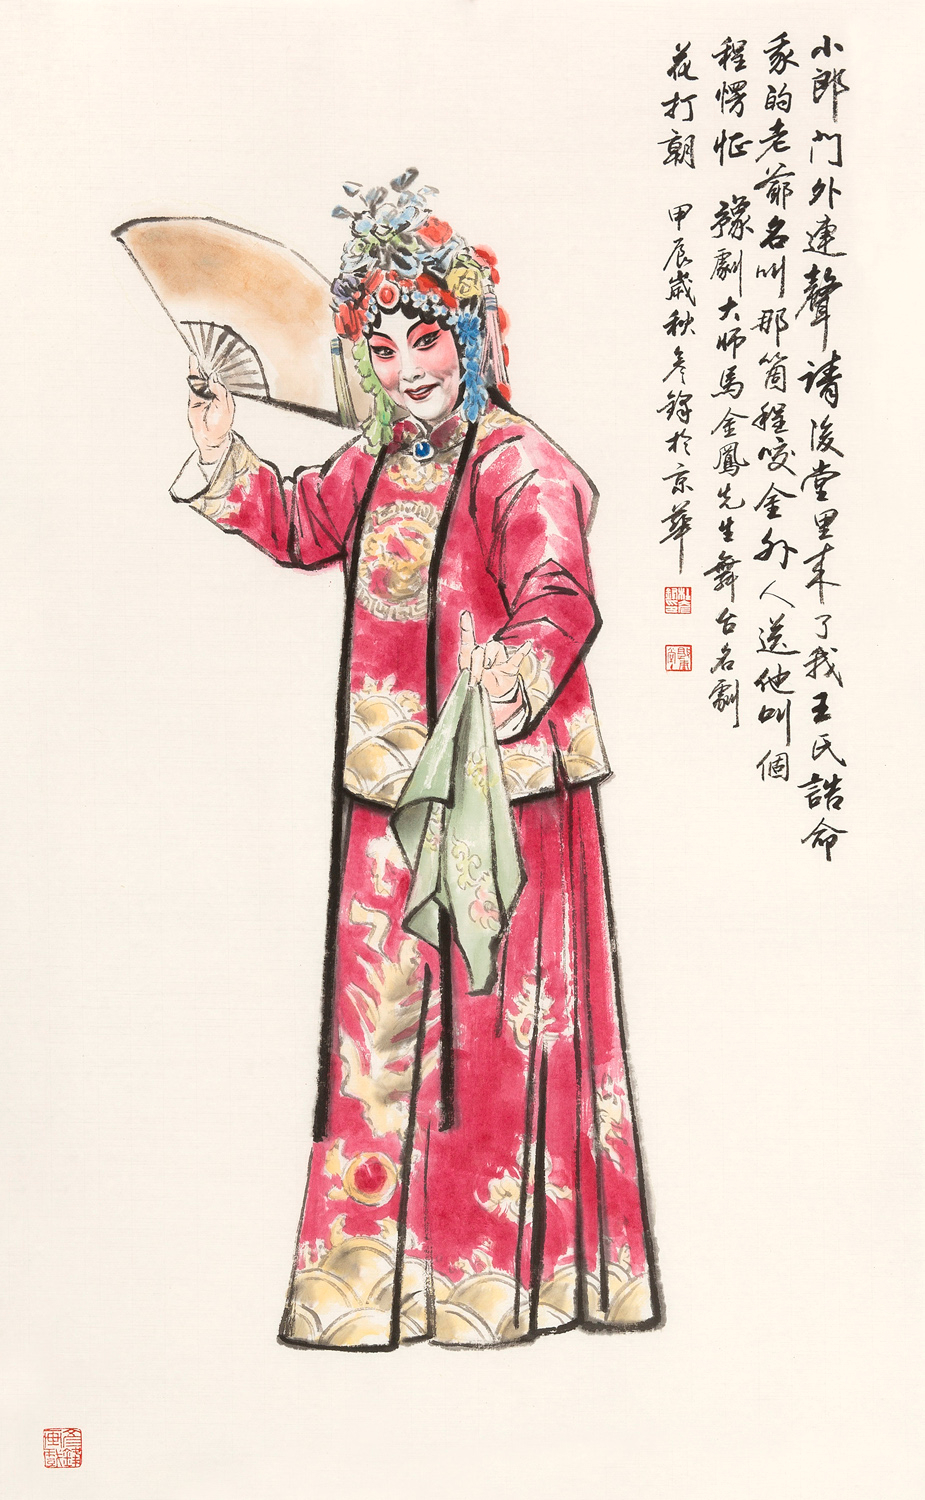 小郎門外連聲请後堂里来了我王氏誥命
我的老爺名叫那箇程咬金外人送他叫個
程愣怔 豫劇大师馬金鳳先生舞台名劇
花打朝 甲辰歲秋彦鋒於京華